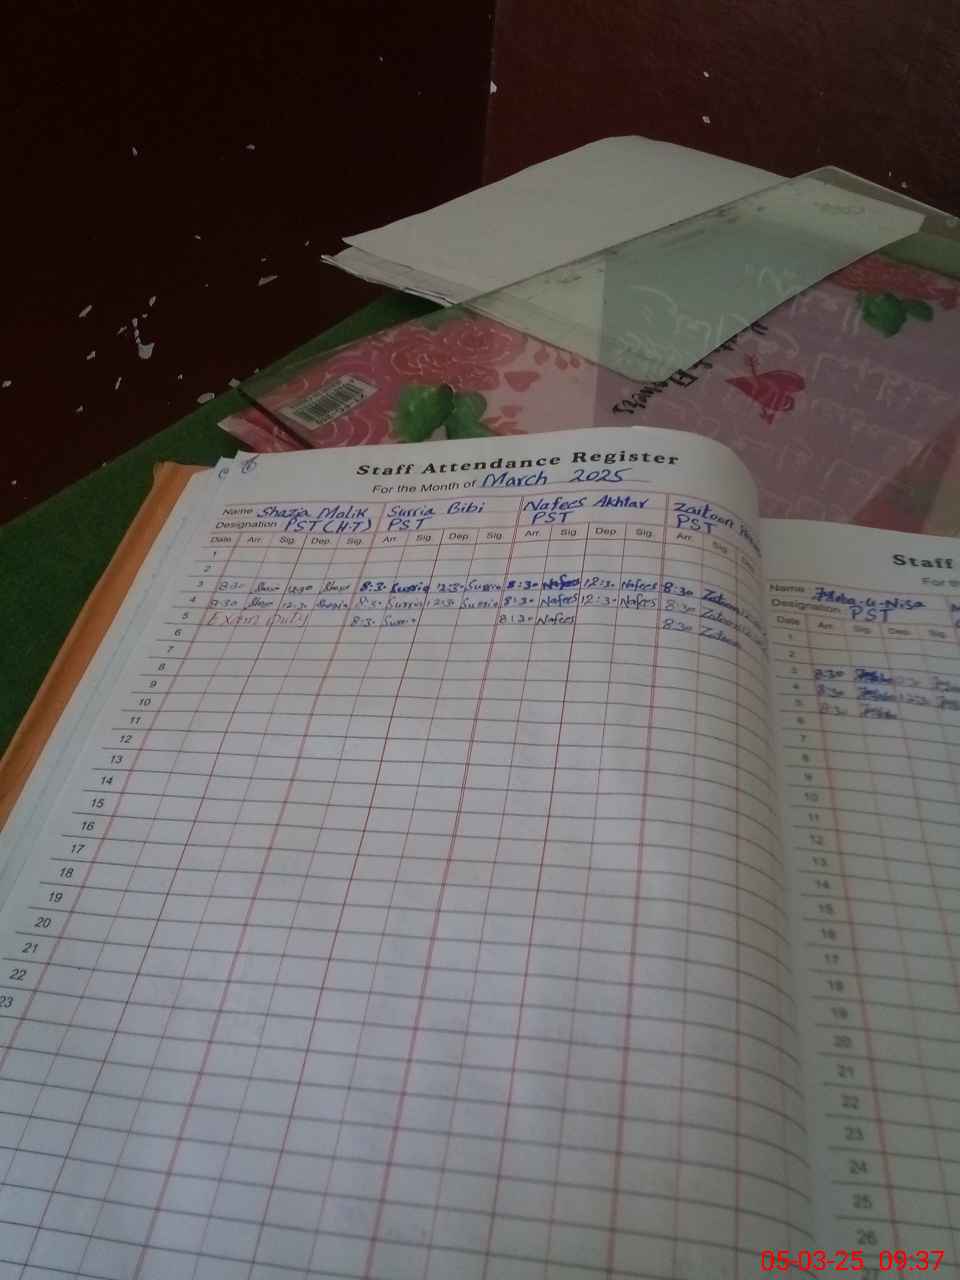 Staff Attendance Register
For the Month of March 2025
Name Shazia Malik Surria Bibi Nafees Akhtar Zaitoon
Designation PST (H.T) PST PST PST
Date Arr. Sig. Dep. Sig. Arr. Sig. Dep. Sig. Arr. Sig. Dep. Sig. Arr. Sig.
1
2
3 8:30 8:3. Surria 12:3. Surria 8:30 Nafees 12:30 Nafees 8:30 Zaitoon
4 8:30 12:30 8:3. Surria 12:30 Surria 8:30 Nafees 12:30 Nafees 8:30 Zaitoon
5 Exam Duty 8:3. Surria 8:30 Nafees 8:30 Zaitoon
6
7
8
9
10
11
12
13
14
15
16
17
18
19
20
21
22
23
Staff
For th
Name
Designation PST
Date Arr. Sig. Dep. Sig.
1
2
3 8:30
4 8:30 12:30
5 8:30
6
7
8
9
10
11
12
13
14
15
16
17
18
19
20
21
22
23
24
25
26
05-03-25 09:37